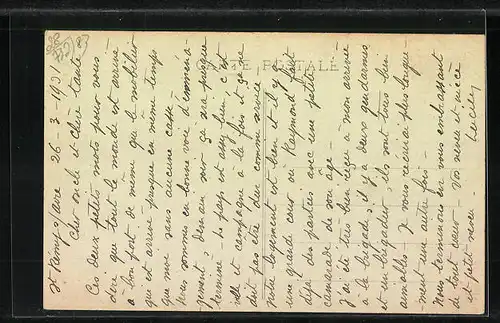 St Rémy s/ aire 26-3-1931
Cher oncle et chère tante
Ces deux petits mots pour vous
dire que tout le monde est arrivé
à bon port de même que le mobilier
qui est arrivé presque en même temps
que moi sans aucune casse.
Nous sommes en bonne voie d'emména-
gement, demain soir ça sera presque
terminé. Le pays est assez bien, c'est
ville et campagne à la fois et ça ne
doit pas être dur comme service
Notre logement est bien et il y a
une grande cour où Raymond fait
déjà des parties avec une petite
camarade de son âge.
J'ai été très bien reçu à mon arrivée
à la brigade, il y a deux gendarmes
et un brigadier, ils sont tous bien
aimables. Je vous écrirai plus longue-
ment une autre fois.
Nous terminons en vous embrassant
de tout cœur. Vos neveu et nièce
et petit neveu.
Lucien
CARTE POSTALE